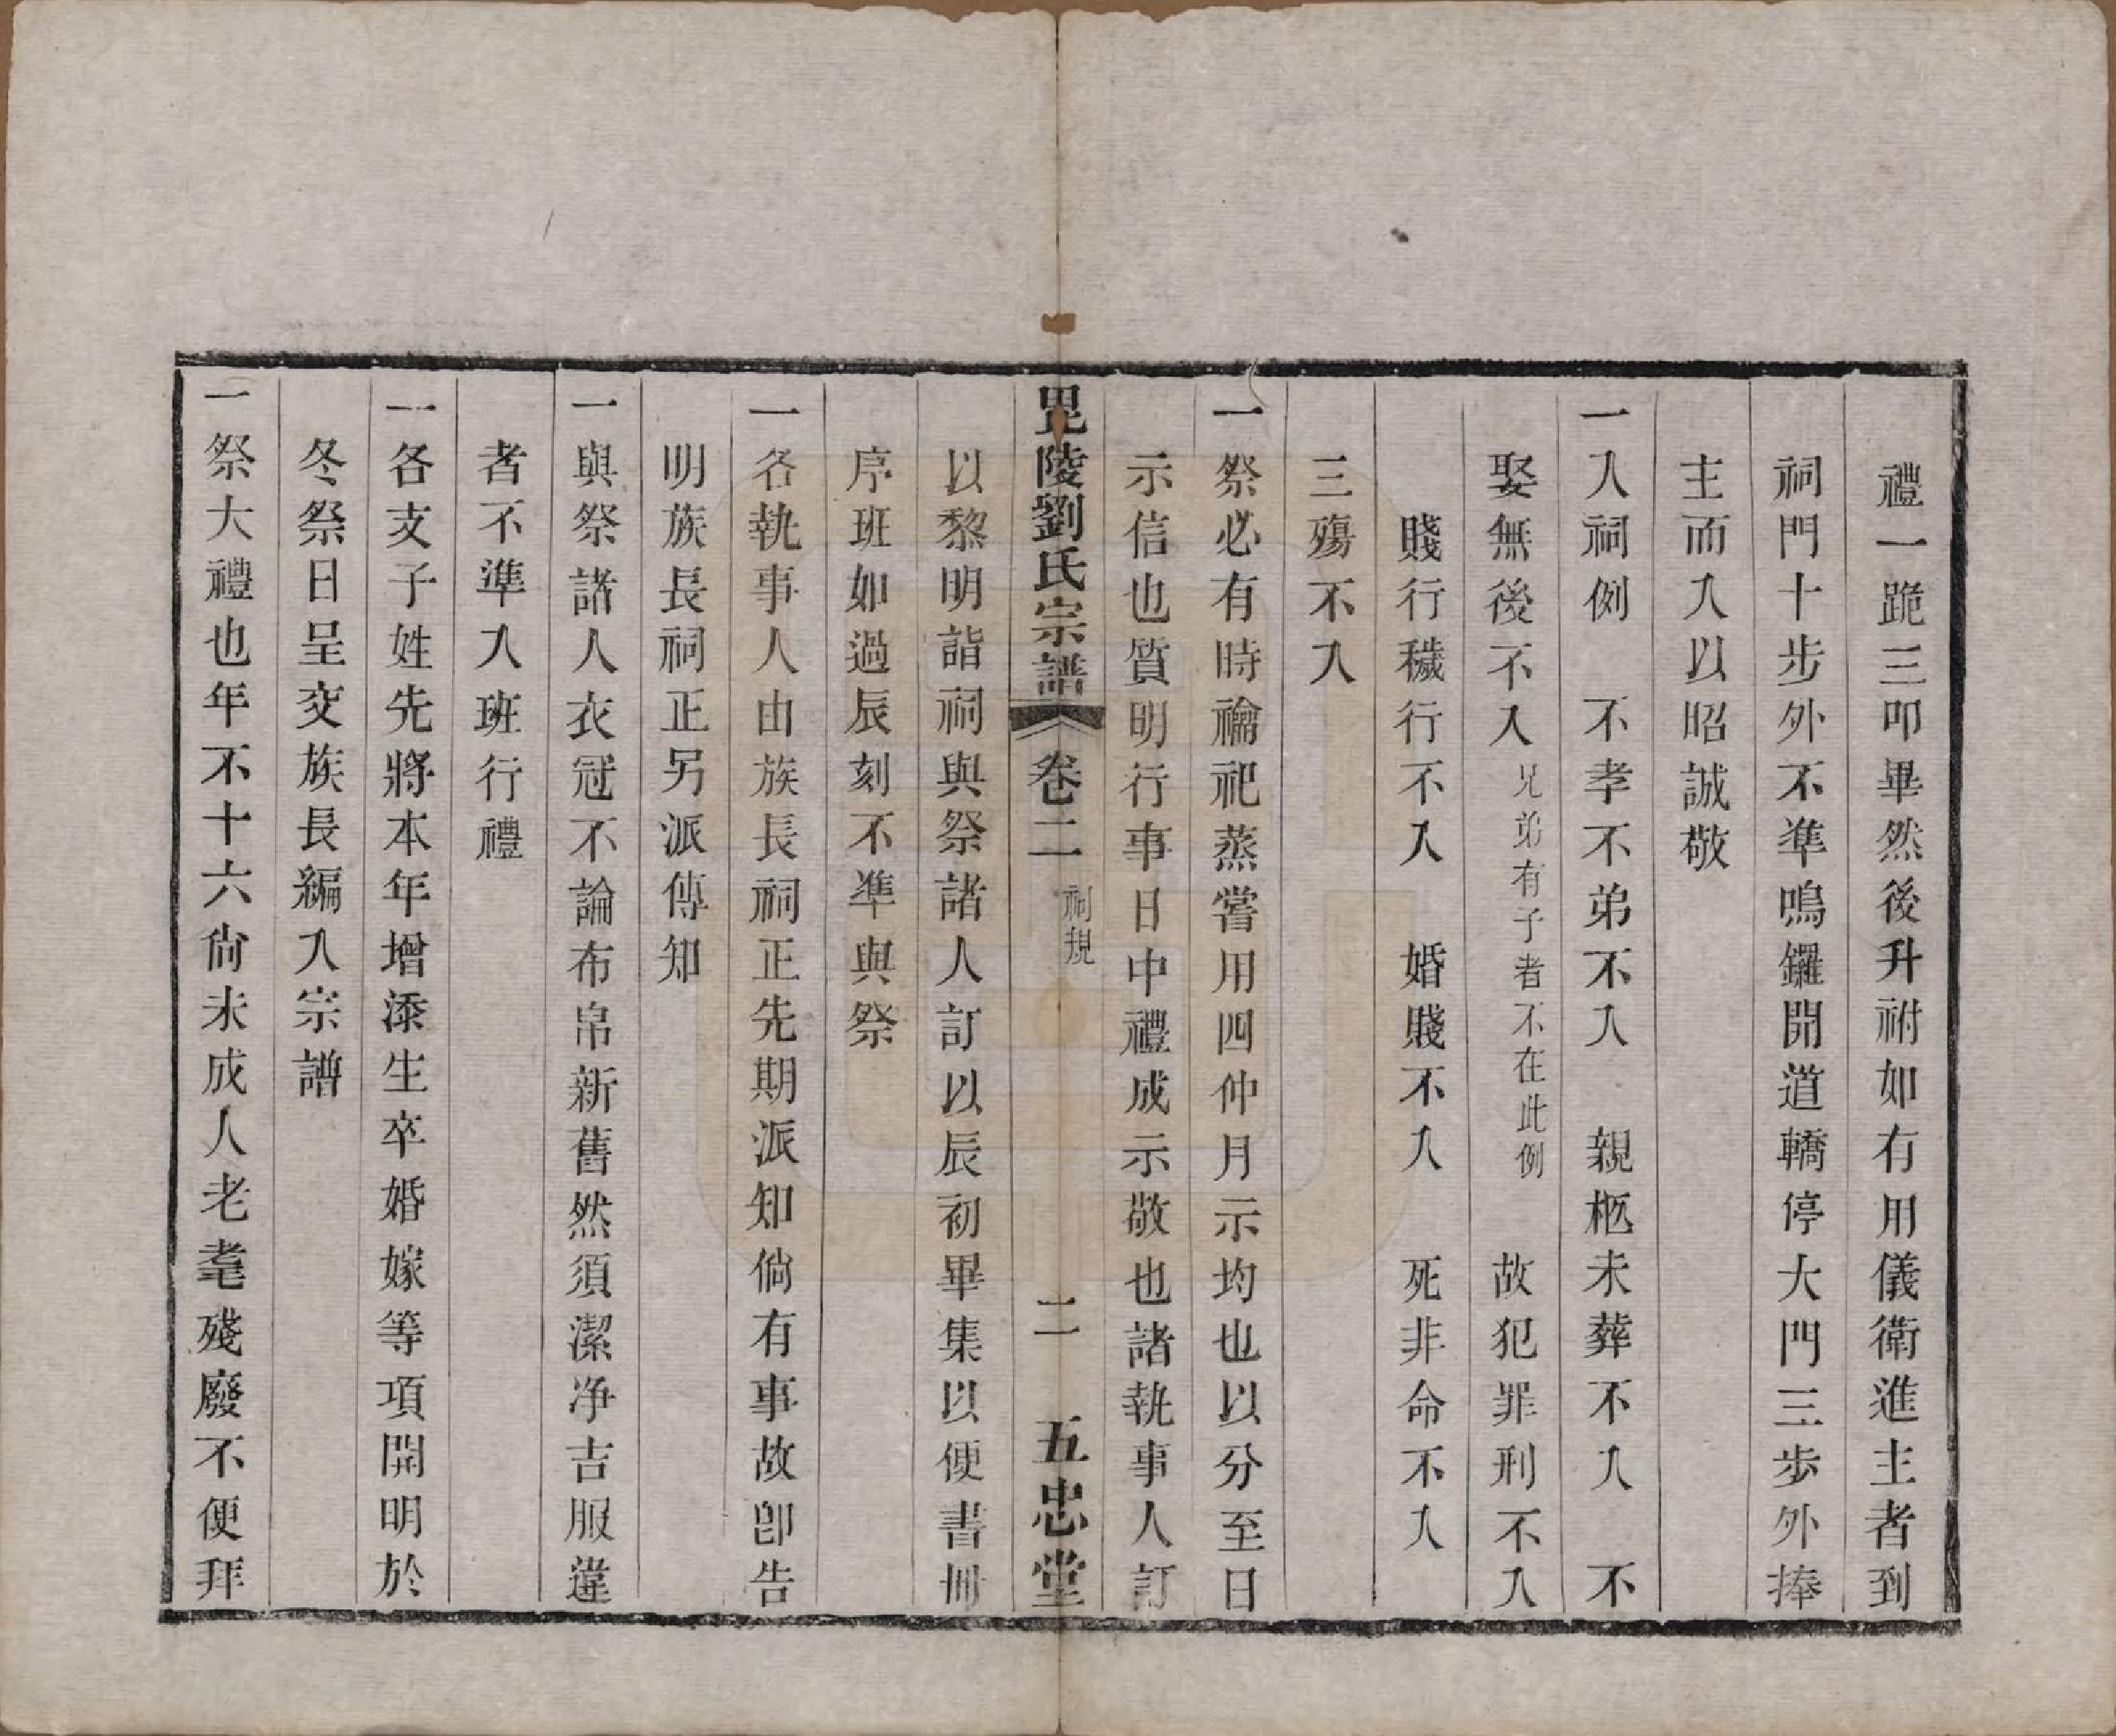 禮一跪三叩畢然後升祔如有用儀衛進主者到
祠門十步外不準鳴鑼開道轎停大門三步外捧
主而入以昭誠敬
一入祠例　不孝不弟不入　親柩未葬不入　不
娶無後不入兄弟有子者不在此例　故犯罪刑不入
賤行穢行不入　婚賤不入　死非命不入
三殤不入
一祭必有時禴祀蒸嘗用四仲月示均也以分至日
示信也質明行事日中禮成示敬也諸執事人訂
毘陵劉氏宗譜　卷二　祠規　二　五忠堂
以黎明詣祠與祭諸人訂以辰初畢集以便書冊
序班如過辰刻不準與祭
一各執事人由族長祠正先期派知倘有事故卽告
明族長祠正另派傳知
一與祭諸人衣冠不論布帛新舊然須潔净吉服違
者不準入班行禮
一各支子姓先將本年增添生卒婚嫁等項開明於
冬祭日呈交族長編入宗譜
一祭大禮也年不十六尙未成人老耄殘廢不便拜